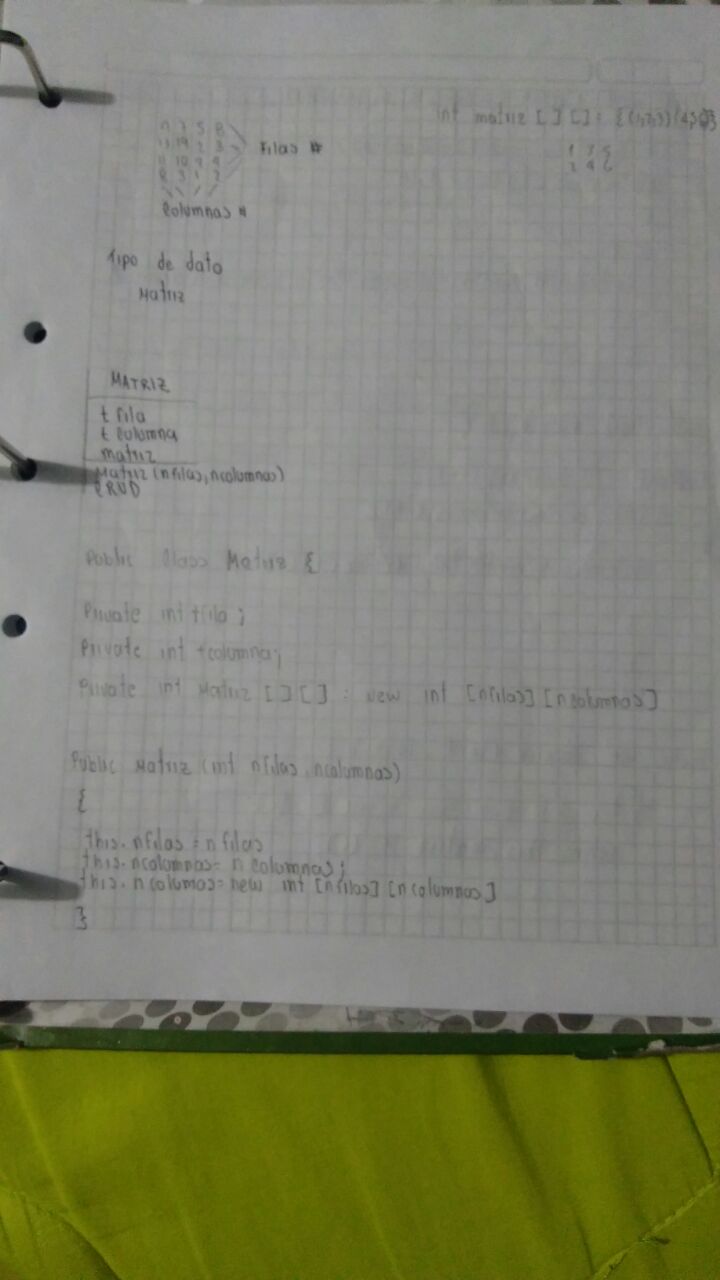 int matriz [ ] [ ] = {(1,2,3)(4,5,6)}
1 3 5
2 4 6
7 5 8
19 2 3
11 10 9 4
8 3 1 2
Filas #
Columnas #
Tipo de dato
Matriz
MATRIZ
t fila
t columna
matriz
Matriz (nfilas, ncolumnas)
CRUD
Public Class Matriz {
Private int tfila ;
Private int tcolumna;
Private int Matriz [ ] [ ] = New int [nfilas] [ncolumnas]
Public Matriz (int nfilas, ncolumnas)
{
this.nfilas = nfilas
this.ncolumnas= ncolumnas;
this.ncolumas= new int [nfilas] [ncolumnas]
}